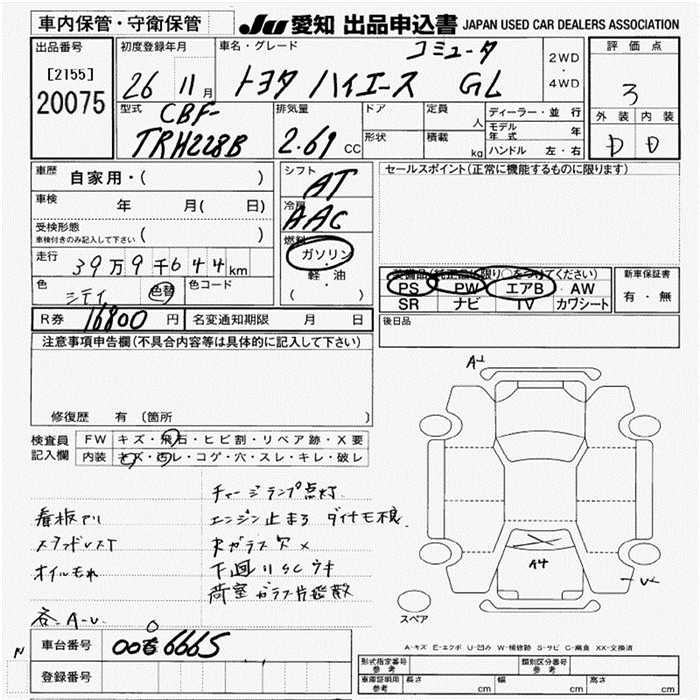 車内保管・守衛保管
JU 愛知 出品申込書 JAPAN USED CAR DEALERS ASSOCIATION
出品番号
[2155]
20075
初度登録年月
26 11月
車名・グレード
コミュータ
トヨタ ハイエース GL
2WD
・
4WD
評価点
3
外装 内装
D D
型式
CBF-
TRH228B
排気量
2.69 CC
ドア
形状
定員
人
積載
kg
ディーラー・並行
モデル年式 年
ハンドル 左・右
車歴
自家用・( )
車検
年 月( 日)
受検形態
車検付きのみ記入して下さい ( )
走行
39万9千644km
色
色替
色コード
シフト
AT
冷房
AAC
燃料
ガソリン
・
軽・油
( )
セールスポイント(正常に機能するものに限ります)
装備品(純正品に限り○をつけてください)
PS PW エアB AW
SR ナビ TV カワシート
新車保証書
有・無
後日品
R券 16800円 名変通知期限 月 日
注意事項申告欄(不具合内容等は具体的に記入して下さい)
修復歴 有(箇所 )
検査員
記入欄
FW キズ・飛石・ヒビ割・リペア跡・X要
内装 キズ・汚レ・コゲ・穴・スレ・キレ・破レ
チャージランプ点灯
エンジン止まる ダイナモ不良
Rガラス欠×
下回りSCウキ
看板
オイルモれ
各-A-U
A-1
A4
スペア
A-キズ E-エクボ U-凹み W-補修跡 S-サビ C-腐食 XX-交換済
車台番号
00番6665
登録番号
型式指定番号
参考
類別区分番号
参考
車庫証明用
参考
長さ cm
幅 cm
高さ cm